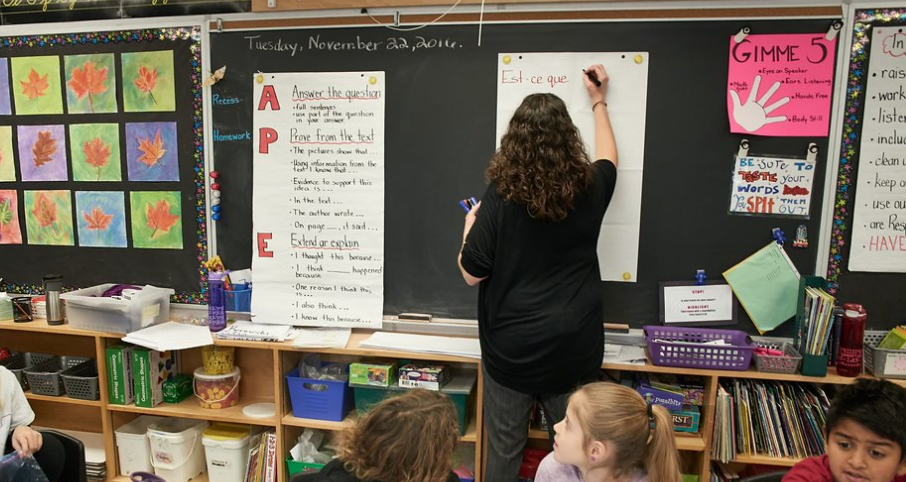 Tuesday, November 22, 2016.
Recess
Homework
A
Answer the question
• full sentences
• use part of the question
in your answer
P
Prove from the text
• The pictures show that...
• Using information from the
text I know that...
• Evidence to support this
idea is...
• In the text...
• The author wrote...
• On page __, it said...
E
Extend or explain
• I thought this because...
• I think ____ happened
because
• One reason I think this
is...
• I also think...
• I know this because...
Est-ce que
GIMME 5
• Eyes on Speaker
• Ears Listening
• Mouth Quiet
• Hands Free
• Body Still
BE SURE TO
TASTE your
WORDS
before
You SPIT THEM OUT
In
• rais
• work
• listen
• inclu
• clean u
• keep o
• use ou
are Resp
HAVE